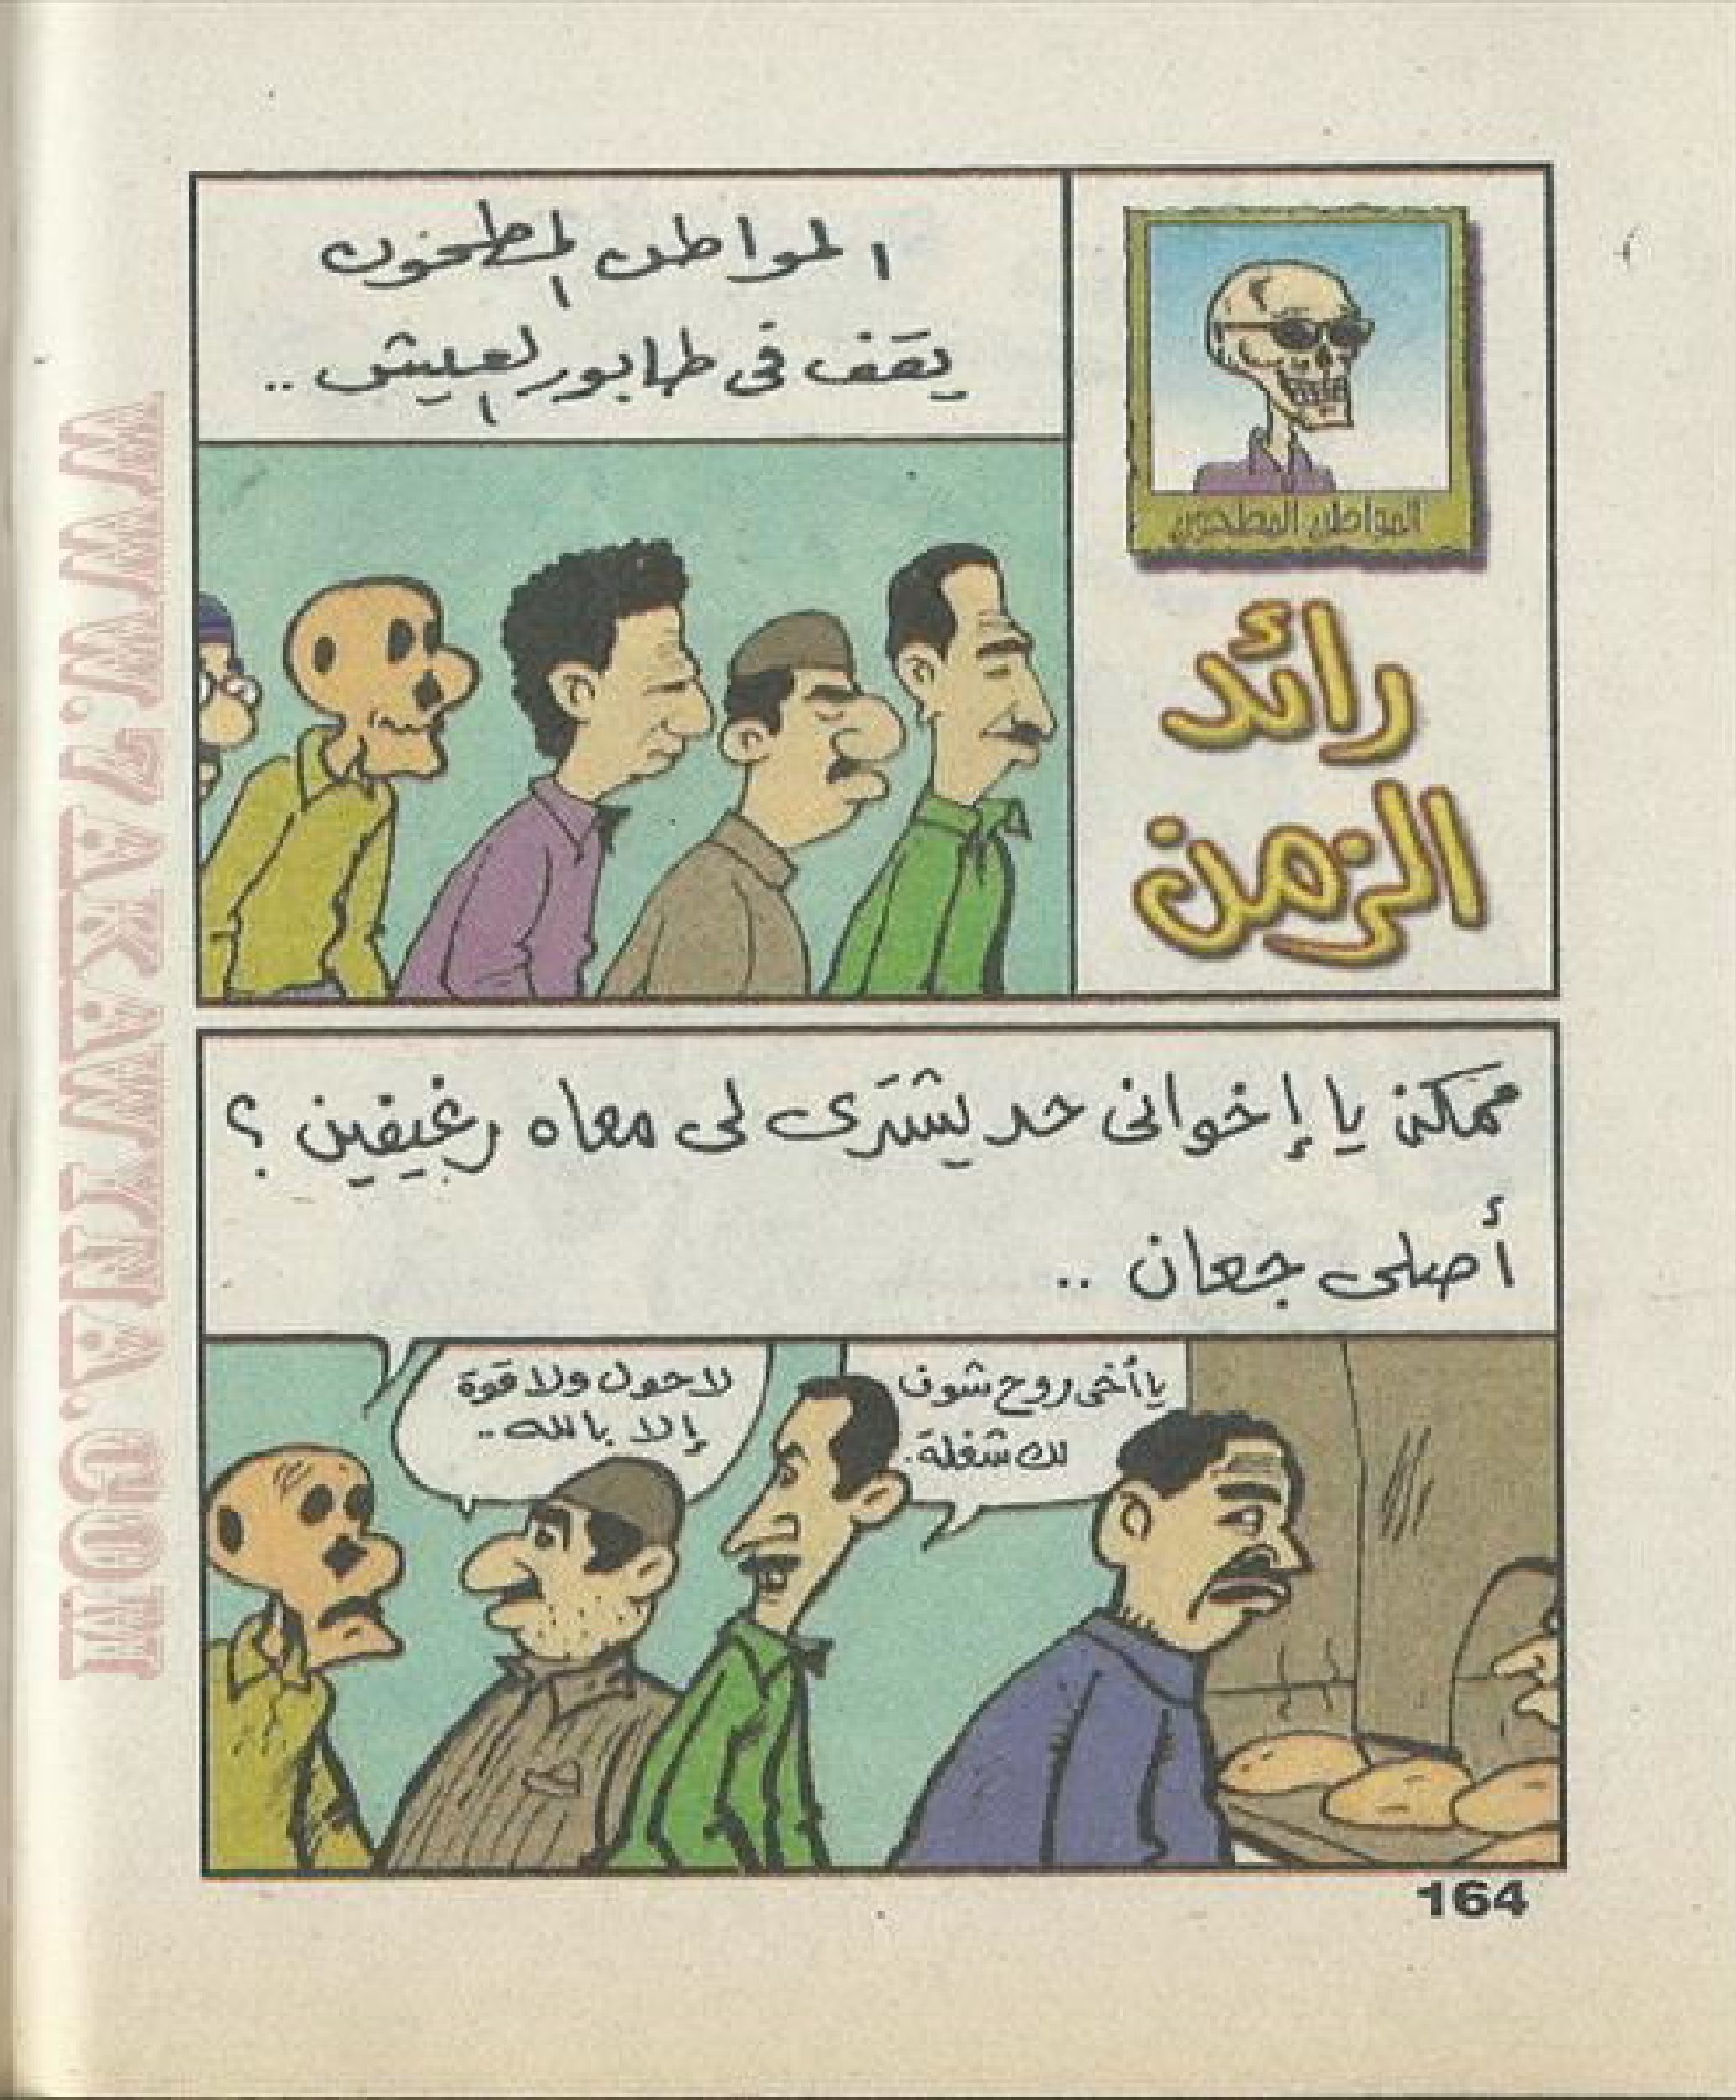 المواطن المطحون
رائد
الزمن
المواطن المطحون
يقف فى طابور العيش ..
ممكن يا إخوانى حد يشترى لى معاه رغيفين ؟
أصلى جعان ..
يا أخى روح شوف
لك شغلة.
لا حول ولا قوة
إلا بالله ..
164